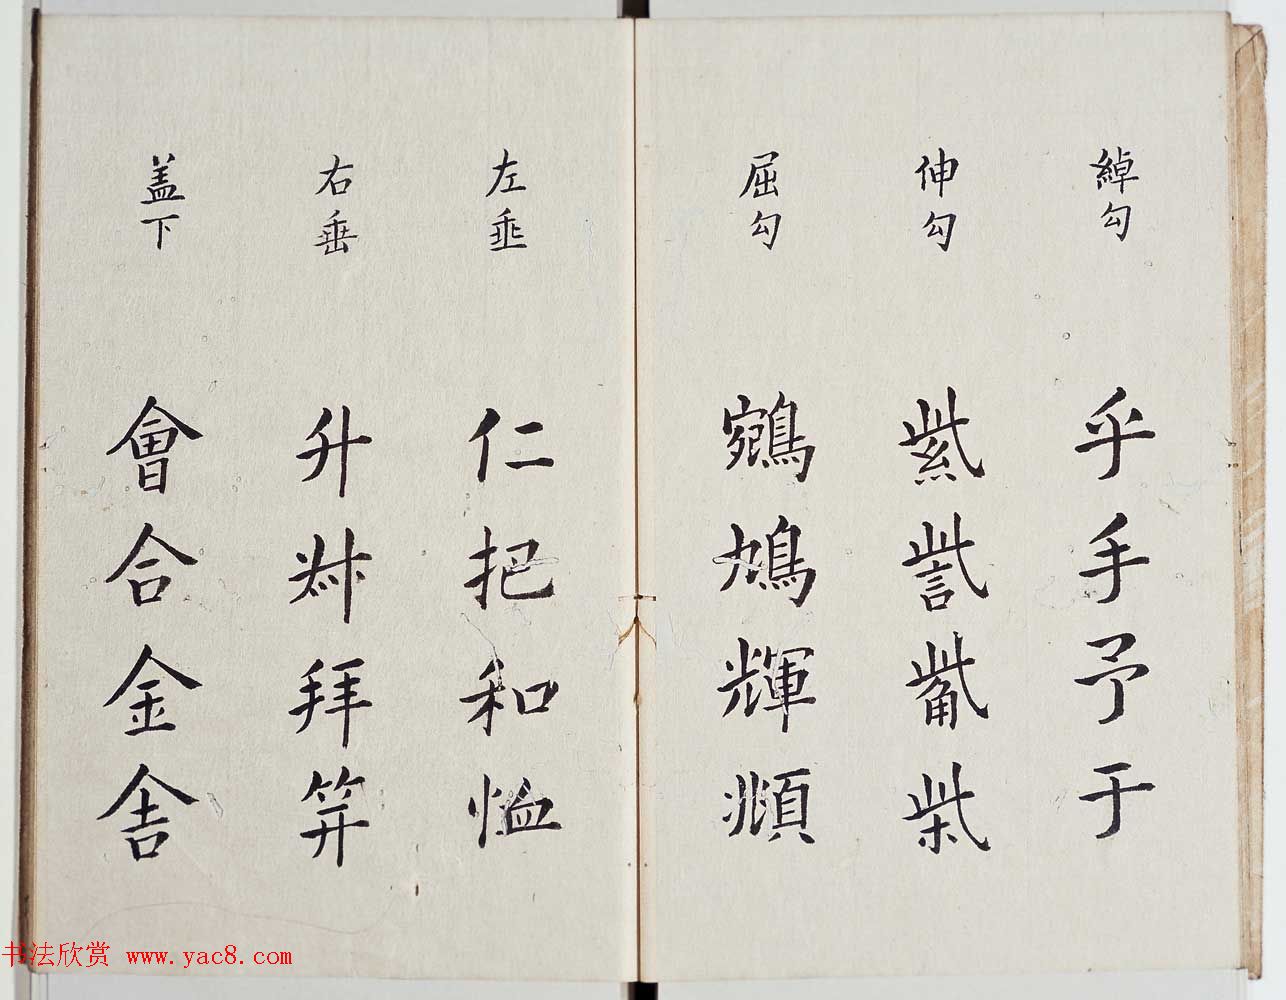 綽勾
乎手予于
伸勾
紫訾觜柴
屈勾
鵷鳩輝頫
左垂
仁把和恤
右垂
升拜笄
盖下
會合金舍
书法欣赏 www.yac8.com